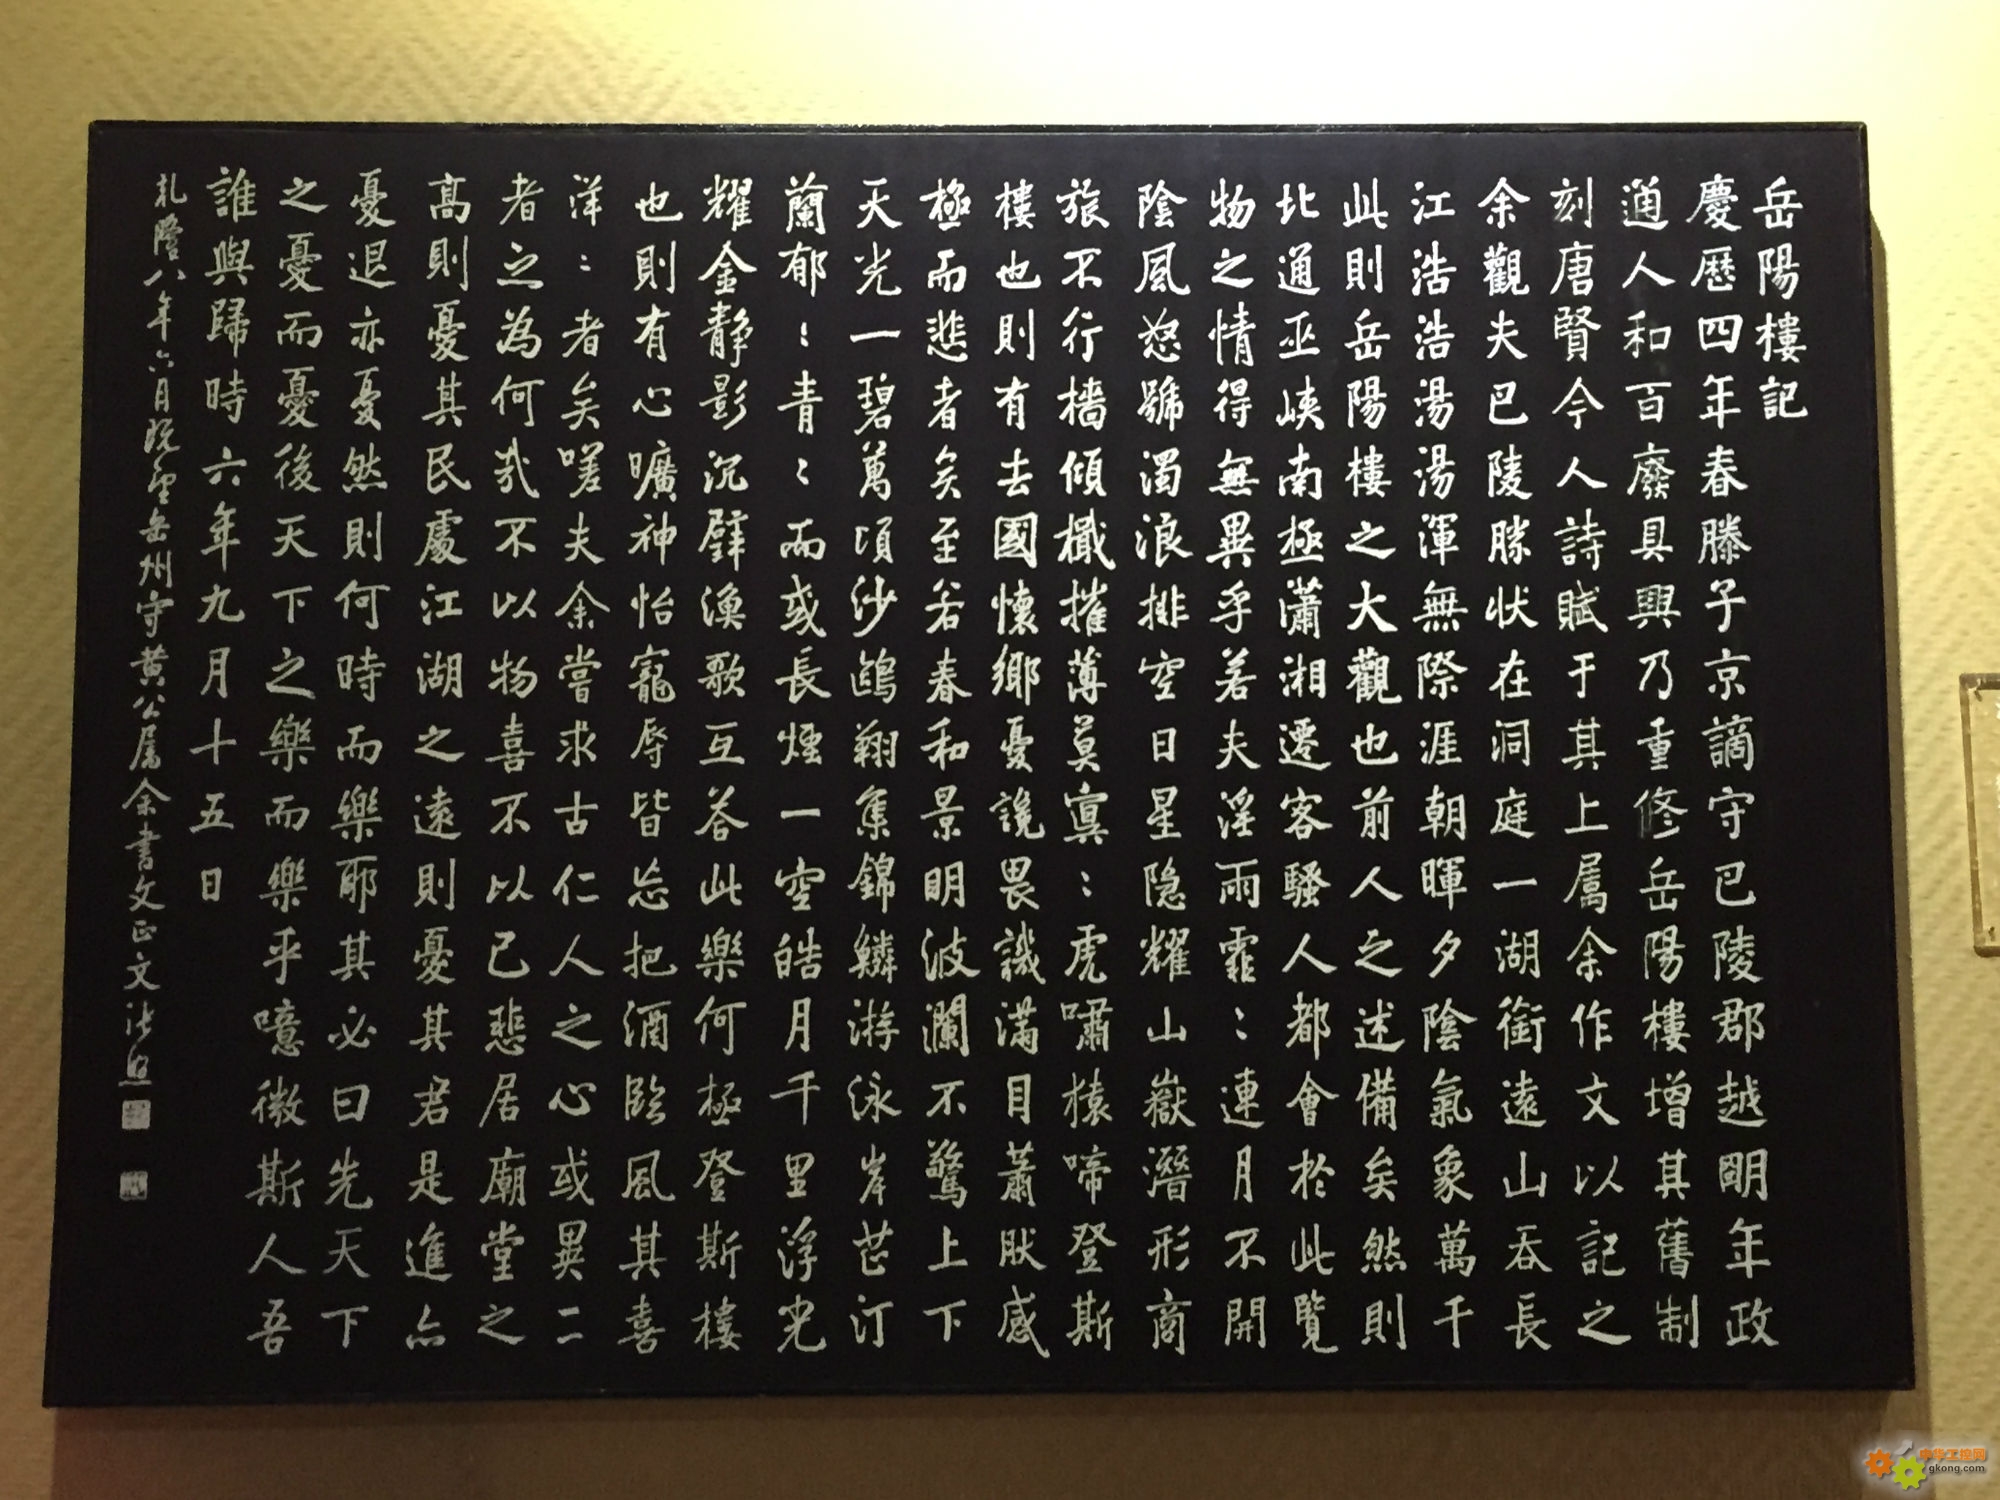 岳陽樓記
慶歷四年春滕子京謫守巴陵郡越明年政
通人和百廢具興乃重修岳陽樓增其舊制
刻唐賢今人詩賦于其上屬余作文以記之
余觀夫巴陵勝狀在洞庭一湖銜遠山吞長
江浩浩湯湯渾無際涯朝暉夕陰氣象萬千
此則岳陽樓之大觀也前人之述備矣然則
北通巫峽南極瀟湘遷客騷人都會於此覽
物之情得無異乎若夫淫雨霏〻連月不開
陰風怒號濁浪排空日星隱耀山嶽潛形商
旅不行檣傾檝摧薄莫冥〻虎嘯猿啼登斯
樓也則有去國懷鄉憂讒畏譏滿目蕭肰感
極而悲者矣至若春和景明波瀾不驚上下
天光一碧萬頃沙鷗翔集錦鱗游泳岸芷汀
蘭郁〻青〻而或長煙一空皓月千里浮光
耀金静影沉璧漁歌互荅此樂何極登斯樓
也則有心曠神怡寵辱皆忘把酒臨風其喜
洋〻者矣嗟夫余嘗求古仁人之心或異二
者之為何哉不以物喜不以己悲居廟堂之
高則憂其民處江湖之遠則憂其君是進亦
憂退亦憂然則何時而樂耶其必曰先天下
之憂而憂後天下之樂而樂乎噫微斯人吾
誰與歸時六年九月十五日
乾隆八年六月既望岳州守黄公屬余書文正文張照
中华工控网
gkong.com